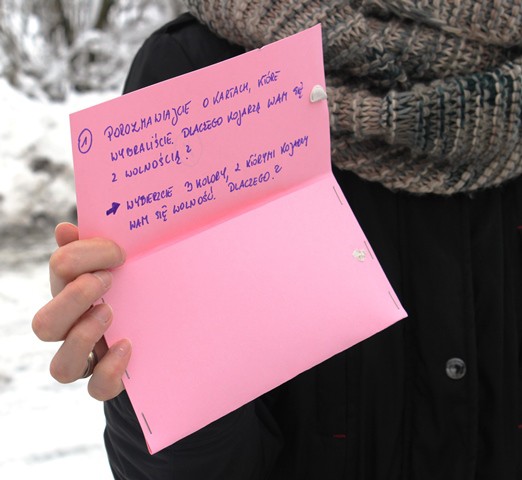 1 POROZMAWIAJCIE O KARTACH, KTÓRE
WYBRALIŚCIE. DLACZEGO KOJARZĄ WAM SIĘ
Z WOLNOŚCIĄ?
→ WYBIERZCIE 3 KOLORY, Z KTÓRYMI KOJARZY
WAM SIĘ WOLNOŚĆ. DLACZEGO?